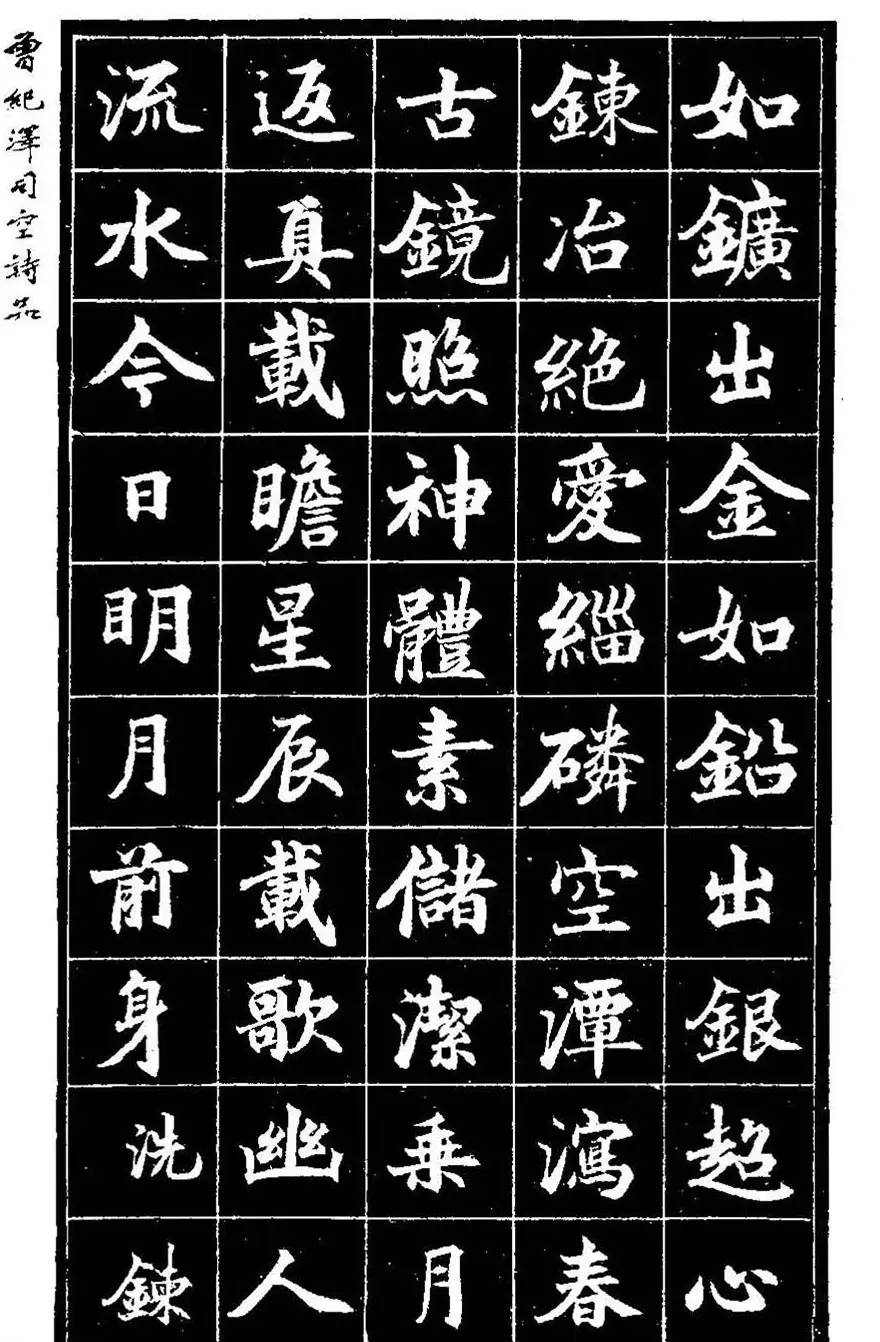 如鑛出金如鉛出銀超心
鍊冶絶愛緇磷空潭瀉春
古鏡照神體素儲潔乗月
返真載瞻星辰載歌幽人
流水今日明月前身洗鍊
曾紀澤司空詩品